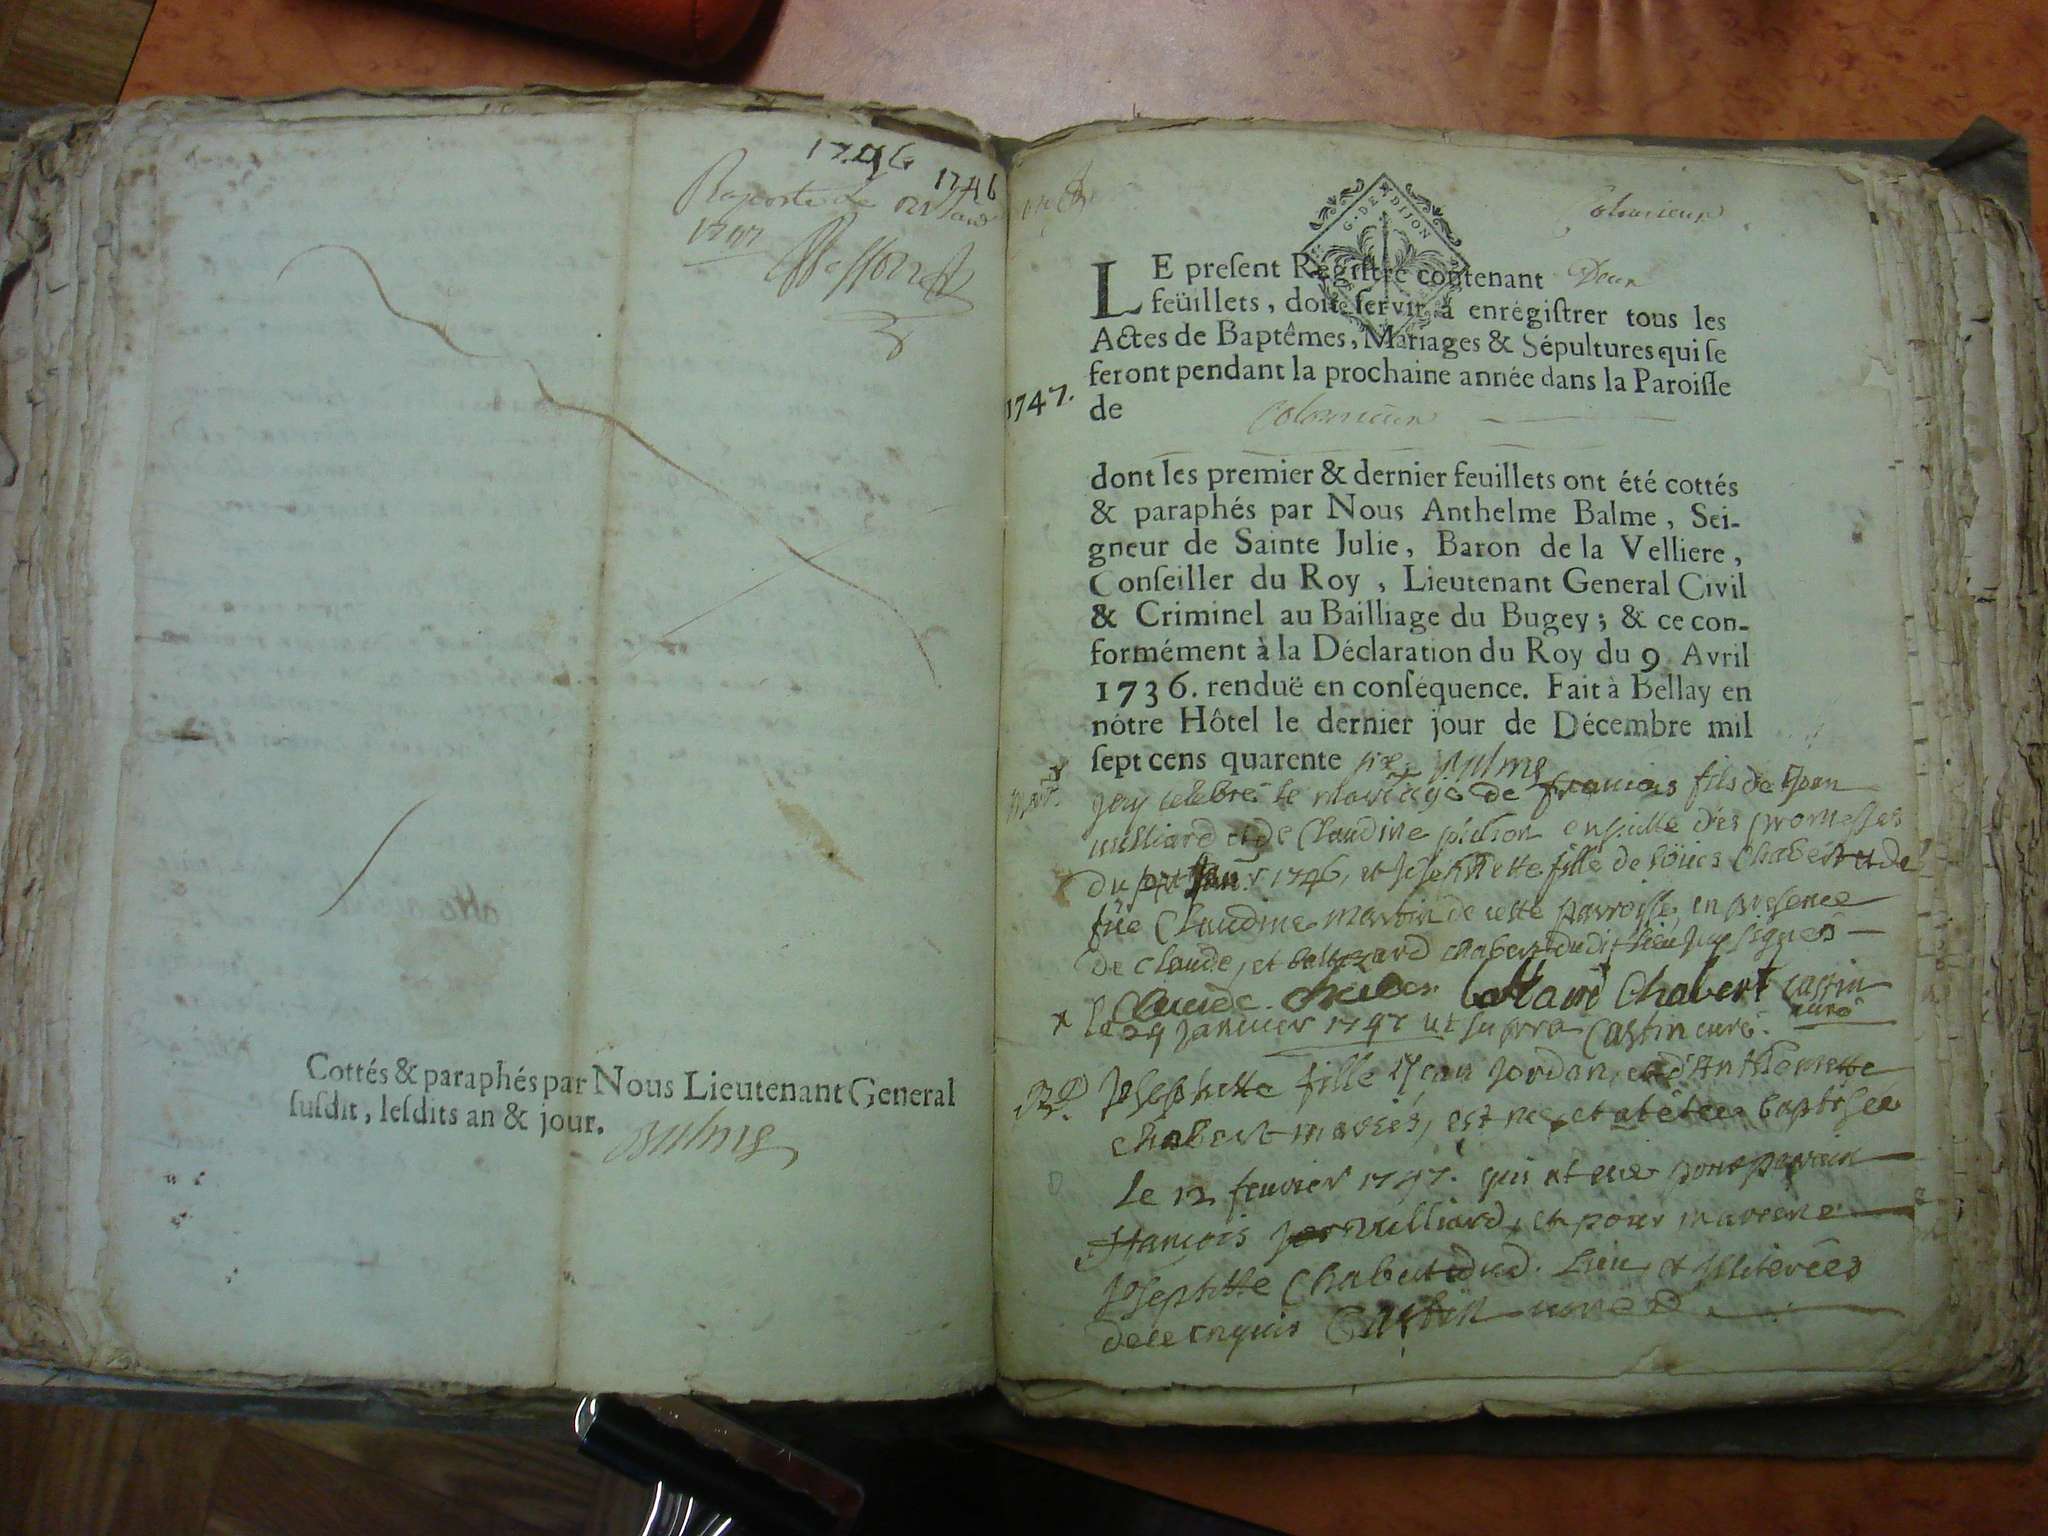 1746
1746
Raporté le
1747
Cottés & paraphés par Nous Lieutenant General
ſuſdit, leſdits an & jour.
Balme
Colomieux
G. DE DIJON
LE preſent Regiſtre contenant Deux
feüillets, doit ſervir à enregiſtrer tous les
Actes de Baptêmes, Mariages & Sépultures qui ſe
feront pendant la prochaine année dans la Paroiſſe
1747.
de Colomieux
dont les premier & dernier feuillets ont été cottés
& paraphés par Nous Anthelme Balme, Sei-
gneur de Sainte Julie, Baron de la Velliere,
Conſeiller du Roy, Lieutenant General Civil
& Criminel au Bailliage du Bugey; & ce con-
formément à la Déclaration du Roy du 9. Avril
1736. renduë en conſéquence. Fait à Bellay en
nôtre Hôtel le dernier jour de Décembre mil
ſept cens quarente six. Balme
j'ey celebré le mariage de francois fils de Jean
milliard et de Claudine en suitte des promesses
du 1746, et Josephtette fille de loüis Chabert et de
füe Claudine martin de cette parroisse, en presence
de Claude, et baltazard chabert dudit lieu signés
Claude baltazard Chabert castin
curé
x le 29 janvier 1747 ut supra Castin curé.
B. Josephtte fille Jean Jordan, et d'Anthelmette
chabert mariés, est née, et at étée baptisée
Le 12 fevrier 1747. qui at eüe pour parrein
francois milliard, et pour marreine
Josephtte Chabert dud. Lieu, et illiterées
de ce enquis Castin curé